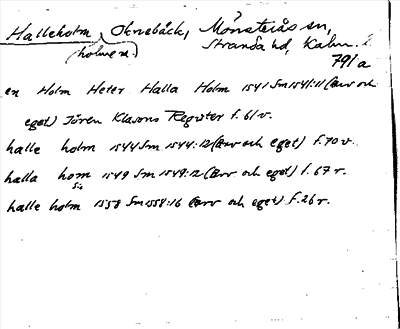 Halleholm, Oknebäck, Mönsterås sn,
(holme n.) Stranda hd, Kalm. l.
791a
en Holm Heter Halla Holm 1541 Sm 1541:11 (arv och
eget) Jören Klasons Register f. 61 v.
halle holm 1544 Sm 1544:12 (arv och eget) f. 70 v.
halla hom 1549 Sm 1549:12 (arv och eget) f. 67 r.
sic
halle holm 1558 Sm 1558:16 (arv och eget) f. 26 r.